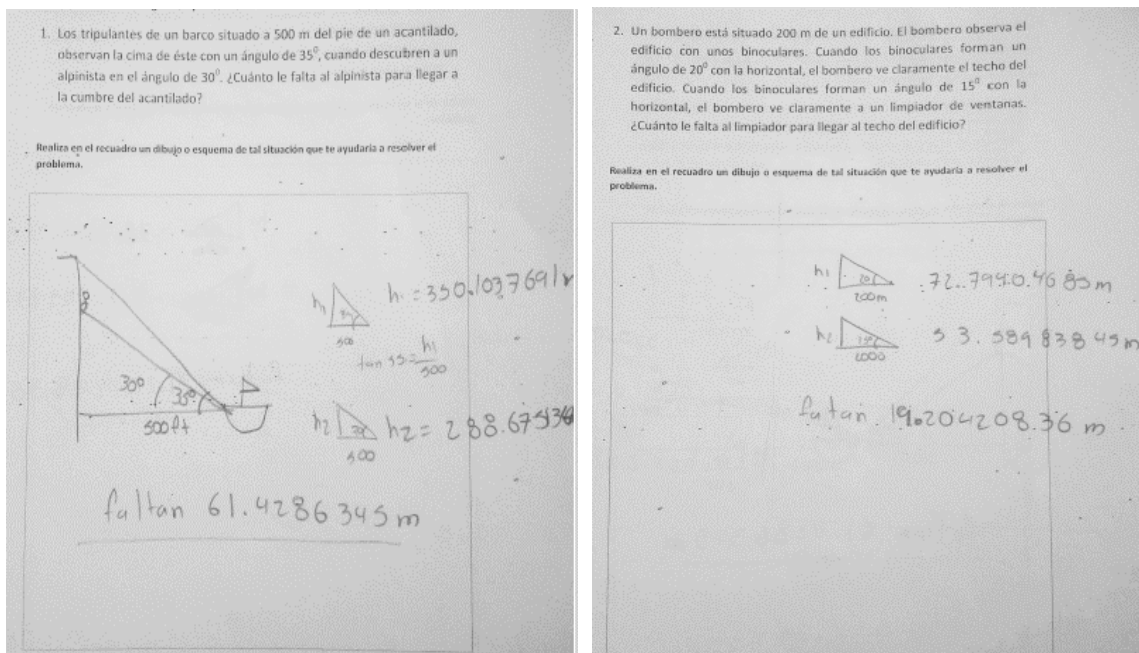 1. Los tripulantes de un barco situado a 500 m del pie de un acantilado,
observan la cima de éste con un ángulo de 35⁰, cuando descubren a un
alpinista en el ángulo de 30⁰. ¿Cuánto le falta al alpinista para llegar a
la cumbre del acantilado?
Realiza en el recuadro un dibujo o esquema de tal situación que te ayudaría a resolver el
problema.
30º
35º
500ft
h1
500
h1 = 350.1037691
tan 35 = h1
500
h2
30
500
h2 = 288.67513
faltan 61.4286345 m
2. Un bombero está situado 200 m de un edificio. El bombero observa el
edificio con unos binoculares. Cuando los binoculares forman un
ángulo de 20⁰ con la horizontal, el bombero ve claramente el techo del
edificio. Cuando los binoculares forman un ángulo de 15⁰ con la
horizontal, el bombero ve claramente a un limpiador de ventanas.
¿Cuánto le falta al limpiador para llegar al techo del edificio?
Realiza en el recuadro un dibujo o esquema de tal situación que te ayudaría a resolver el
problema.
h1
20
200m
h2
53.58983845m
faltan 19.204208.36 m